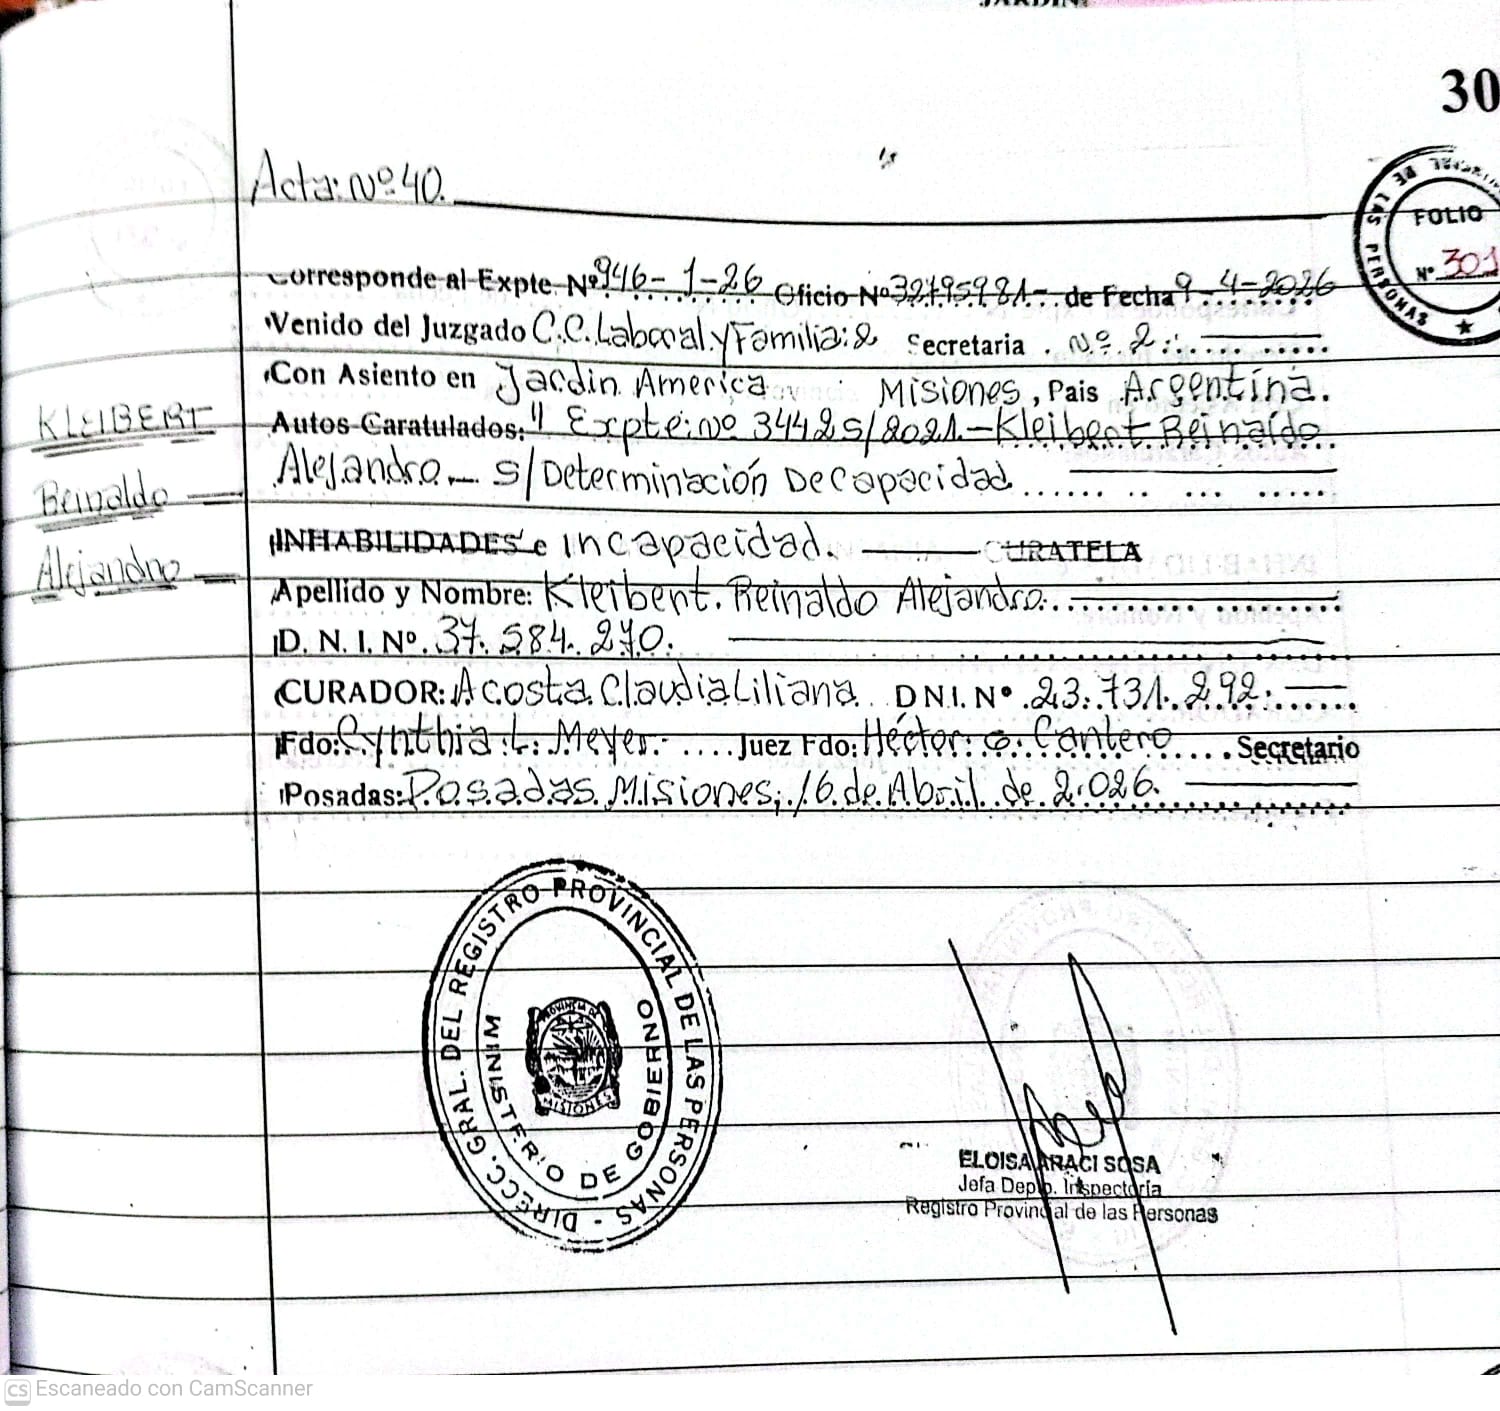 30
Acta: Nº 40.
FOLIO
Nº 301
DE LAS PERSONAS
Corresponde al Expte. Nº 946-1-26 Oficio Nº 32795981.- de Fecha 9-4-2026
Venido del Juzgado C.C. Laboral y Familia: 2 Secretaria . Nº 2.
Con Asiento en Jardin America Misiones, Pais Argentina.
KLEIBERT
Autos Caratulados: " Expte: Nº 34425/2021.- Kleibert Reinaldo
Alejandro.- S/Determinación De Capacidad
Reinaldo
INHABILIDADES e incapacidad. CURATELA
Alejandro
Apellido y Nombre: Kleibert. Reinaldo Alejandro.
D. N. I. Nº. 37.584.270.
CURADOR: Acosta Claudia Liliana DNI. Nº 23.731.292.
Fdo: Cynthia L. Meyer. Juez Fdo: Héctor G. Cantero Secretario
Posadas: Posadas Misiones, 16 de Abril de 2.026.
DIRECC. GRAL. DEL REGISTRO PROVINCIAL DE LAS PERSONAS -
MINISTERIO DE GOBIERNO
PROVINCIA DE
MISIONES
ELOISA ARACI SOSA
Jefa Depto. Inspectoría
Registro Provincial de las Personas
CS Escaneado con CamScanner